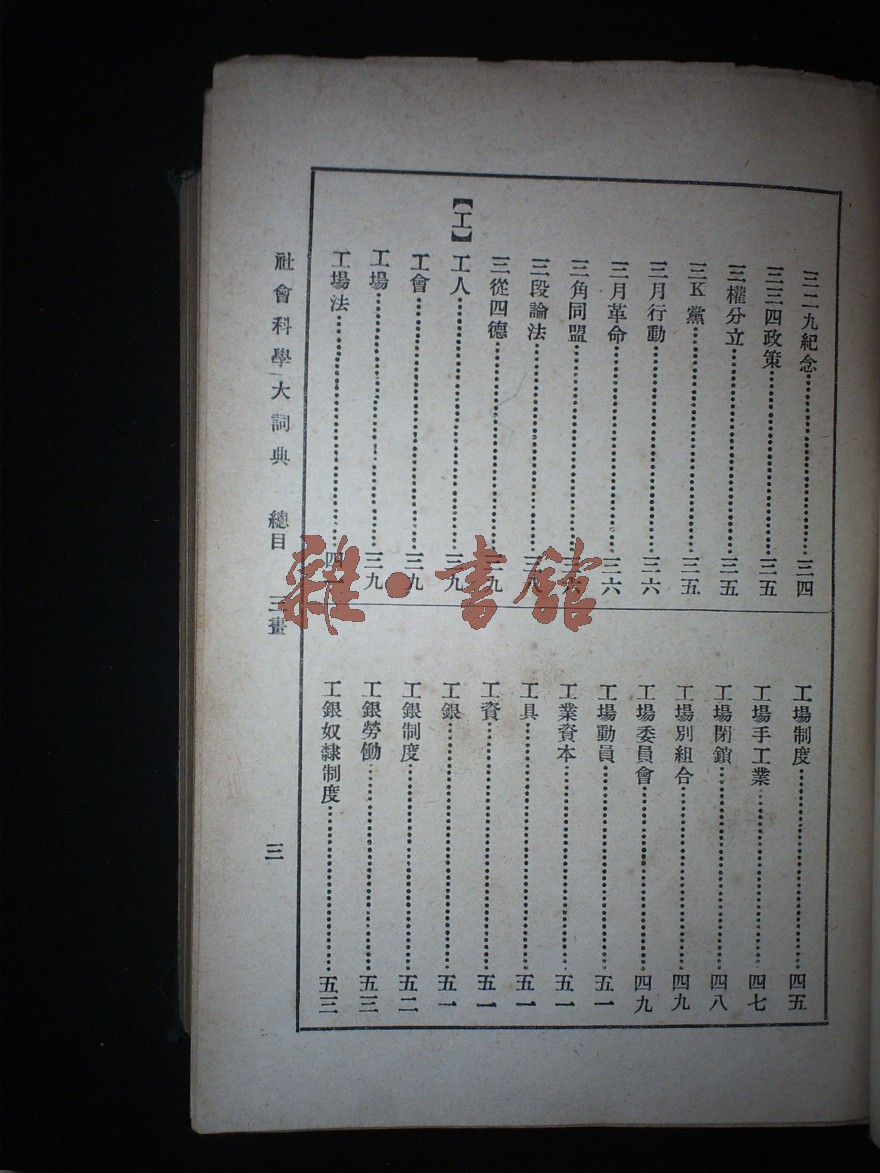 三二九紀念……三四
三三四政策……三五
三權分立……三五
三K黨……三五
三月行動……三六
三月革命……三六
三角同盟……三六
三段論法……三八
三從四德……三九
【工】
工人……三九
工會……三九
工場……三九
工場法……四一
工場制度……四五
工場手工業……四七
工場閉鎖……四八
工場別組合……四九
工場委員會……四九
工場動員……五一
工業資本……五一
工具……五一
工資……五一
工銀……五一
工銀制度……五二
工銀勞働……五三
工銀奴隸制度……五三
社會科學大詞典 總目 三畫 三
雜·書館